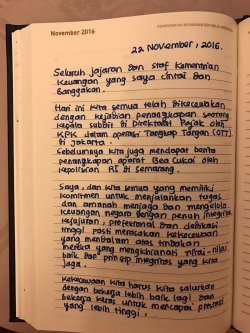 November 2016
KEMENTERIAN KEUANGAN REPUBLIK INDONESIA
22 November, 2016.
Seluruh jajaran dan staf Kementrian
Keuangan yang saya cintai dan
Banggakan.
Hari ini kita semua telah dikecewakan
dengan kejadian penangkapan seorang
kepala subdit di Direktorat Pajak oleh
KPK dalam operasi Tangkap Tangan (OTT)
di Jakarta.
Sebelumnya kita juga mendapat berita
penangkapan aparat Bea Cukai oleh
Kepolisian RI di Semarang.
Saya, dan kita semua yang memiliki
komitmen untuk menjalankan tugas
dan amanah menjaga dan mengelola
keuangan negara dengan penuh integritas
kejujuran, profesional dan dedikasi
tinggi pasti merasakan kekecewaan
yang mendalam atas tindakan
mereka yang mengkhianati nilai-nilai
baik dan prinsip integritas yang kita
jaga.
Kekecewaan kita harus kita salurkan
dengan bekerja lebih baik lagi dan
bekerja keras untuk mencapai prestasi
yang lebih tinggi.